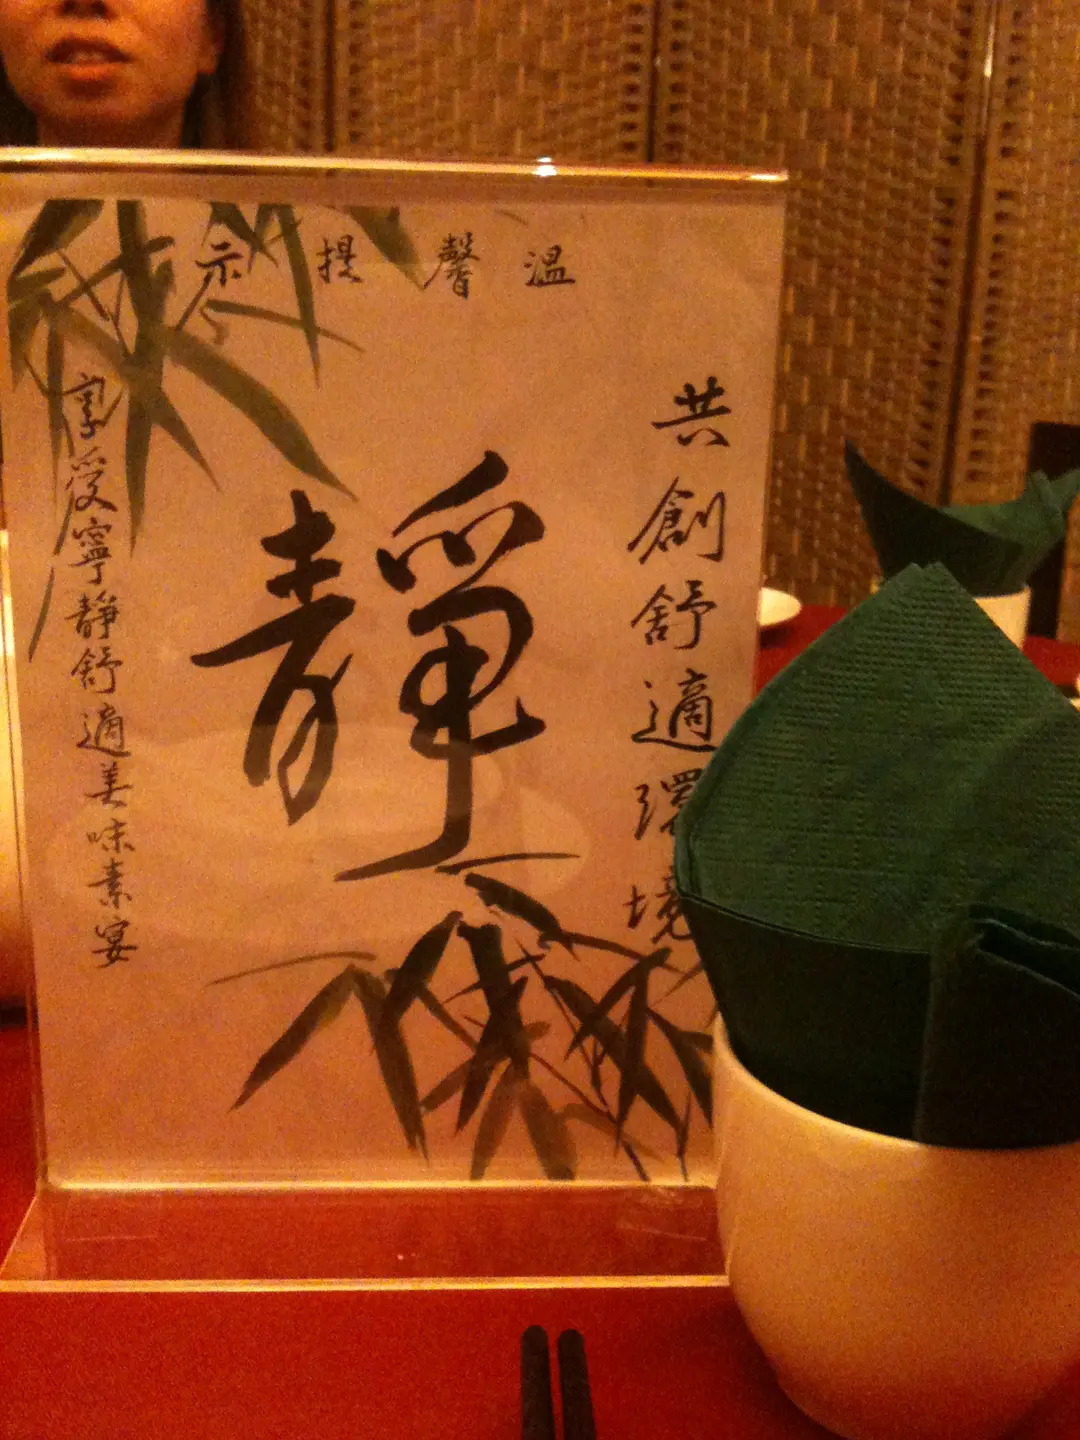 溫馨提示
共創舒適環境
靜
享受寧靜舒適美味素宴